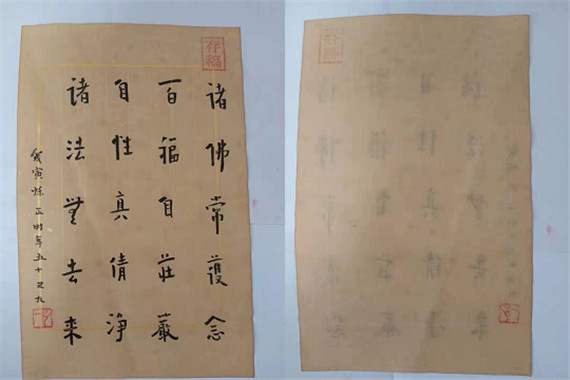 存稿
諸佛常護念
百福自莊嚴
自性真清淨
諸法無去來
寅 正時年五十又九